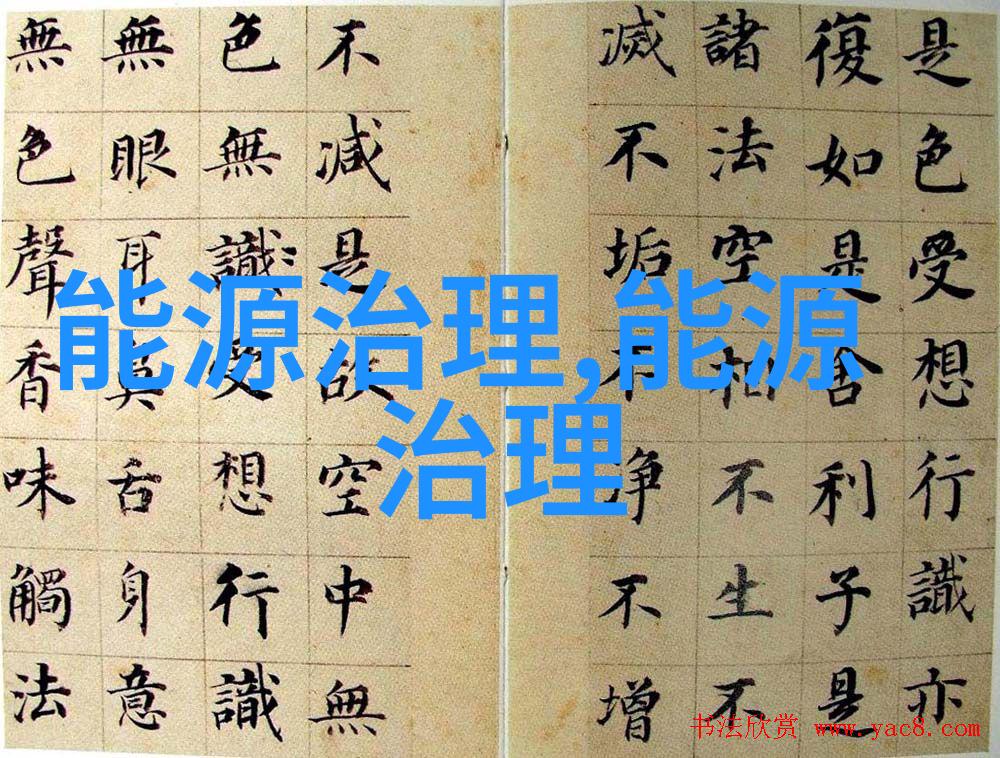 是色受想行識亦
復如是舍利子是
諸法空相不生不
滅不垢不净不增
不減是故空中無
色無識受想行識
無眼耳鼻舌身意
無色聲香味觸法
能源治理,能源
治理
书法欣赏 www.yac8.com